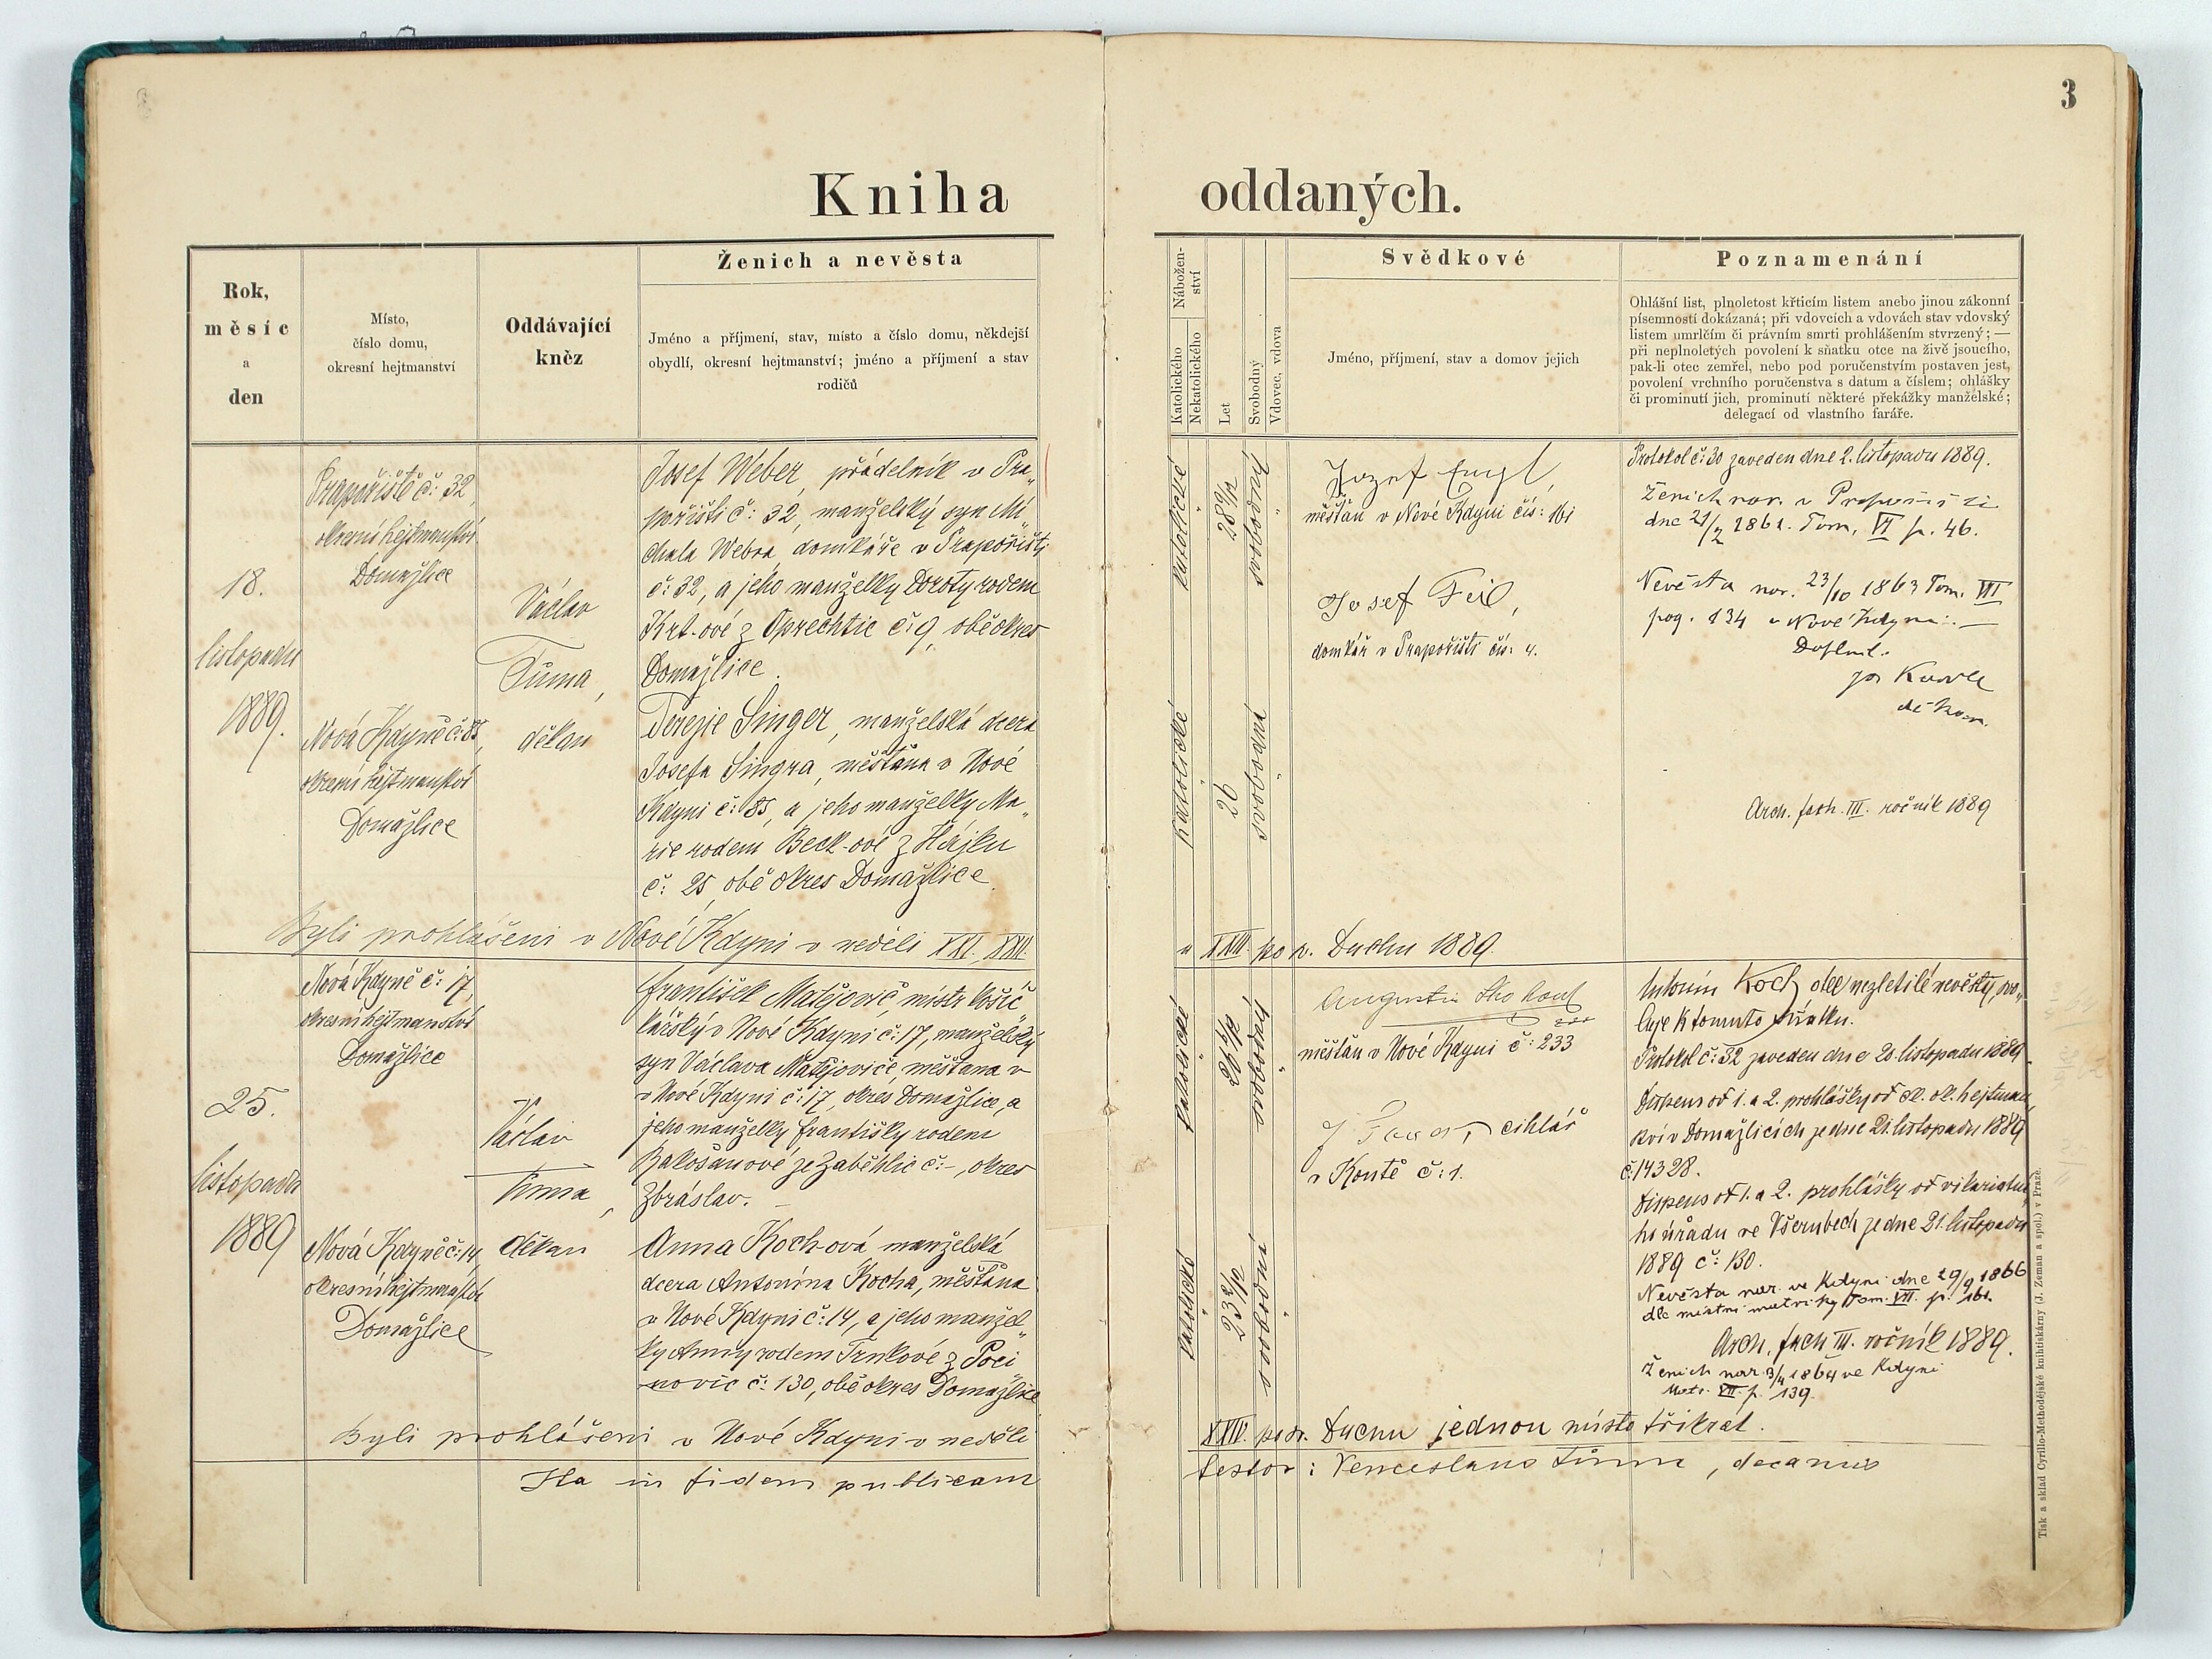 3
Kniha oddaných.
Rok,
měsíc
a
den
Místo,
číslo domu,
okresní hejtmanství
Oddávající
kněz
Ženich a nevěsta
Jméno a příjmení, stav, místo a číslo domu, někdejší
obydlí, okresní hejtmanství; jméno a příjmení a stav
rodičů
Nábožen-
ství
Katolického
Nekatolického
Let
Svobodný
Vdovec, vdova
Svědkové
Jméno, příjmení, stav a domov jejich
Poznamenání
Ohlášní list, plnoletost křticím listem anebo jinou zákonní
písemností dokázaná; při vdovcích a vdovách stav vdovský
listem umrlčím či právním smrti prohlášením stvrzený; —
při neplnoletých povolení k sňatku otce na živě jsoucího,
pak-li otec zemřel, nebo pod poručenstvím postaven jest,
povolení vrchního poručenstva s datum a číslem; ohlášky
či prominutí jich, prominutí některé překážky manželské;
delegací od vlastního faráře.
18.
listopadu
1889.
Prapořiště č: 32,
okresní hejtmanství
Domažlice
Nová Kdyně č: 85,
okresní hejtmanství
Domažlice
Václav
Tůma,
děkan
Josef Weber, přádelník v Pra„
pořišti č: 32, manželský syn Mi„
chala Webra, domkáře v Prapořišti
č: 32, a jeho manželky Doroty rodem
Krt-ové z Oprechtic č: 9, obě okres
Domažlice.
Terezie Singer, manželská dcera
Josefa Singra, měšťana v Nové
Kdyni č: 85, a jeho manželky Ma„
rie rodem Beck-ové z Hájku
č: 25, obě okres Domažlice.
katolické
28 9/12
svobodný
katolické
26
svobodná
Jozef Engl,
měšťan v Nové Kdyni čís: 161
Josef Feil,
domkář v Prapořišti čís: 4.
Protokol č: 30 zaveden dne 2. listopadu 1889.
Ženich nar. v Prapořišti
dne 21/2 1861. Tom. VI p. 46.
Nevěsta nar. 23/10 1863 Tom. VII
pag. 134 v Nové Kdyni. —
Doplnil.
děkan.
Arch. fach. III. ročník 1889
Byli prohlášeni v Nové Kdyni v neděli XXI., XXII.
a XXIII. po sv. Duchu 1889.
25.
listopadu
1889
Nová Kdyně č: 17,
okresní hejtmanství
Domažlice
Nová Kdyně č: 14,
okresní hejtmanství
Domažlice
Václav
Tůma,
děkan
František Matějovič, mistr košíč„
kářský v Nové Kdyni č: 17, manželský
syn Václava Matějoviče, měšťana v
v Nové Kdyni č: 17, okres Domažlice, a
jeho manželky Františky rodem
ze Zaběhlic č: –, okres
Zbráslav. –
Anna Koch-ová, manželská
dcera Antonína Kocha, měšťana
v Nové Kdyni č: 14, a jeho manžel„
ky Anny rodem Trnkové z Poci„
novic č: 130, obě okres Domažlice
katolické
svobodný
katolické
23 2/12
svobodná
Augustin
měšťan v Nové Kdyni č: 233
cihlář
v Koutě č: 1.
Antonín Koch otec nezletilé nevěsty, svo„
luje k tomuto sňatku.
Protokol č: 32 zaveden dne 20. listopadu 1889.
Dispens od 1. a 2. prohlášky od sl. ok. hejtman„
ství v Domažlicích ze dne 21. listopadu 1889
č: 14328.
Dispens od 1. a 2. prohlášky od vikariatní„
ho úřadu ve Všerubech ze dne 21. listopadu
1889 č: 130.
Nevěsta nar. ve Kdyni dne 29/9 1866
dle místní matriky Tom. VII. p. 161.
Arch. fach III. ročník 1889.
Ženich nar. 3/4 1864 ve Kdyni
Matr. VII. p. 139.
Byli prohlášeni v Nové Kdyni v neděli
XXIV. po sv. Duchu jednou místo třikrát.
Ita in fidem publicam
testor: Venceslaus Tůma, decanus
Tisk a sklad Cyrillo-Methodějské knihtiskárny (J. Zeman a spol.) v Praze.